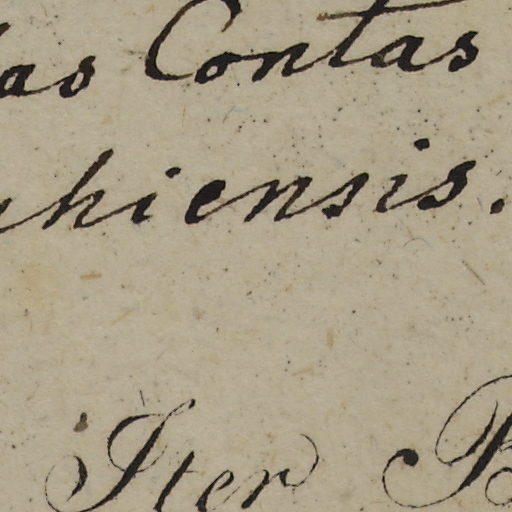 as Contas
hiensis.
Iter B